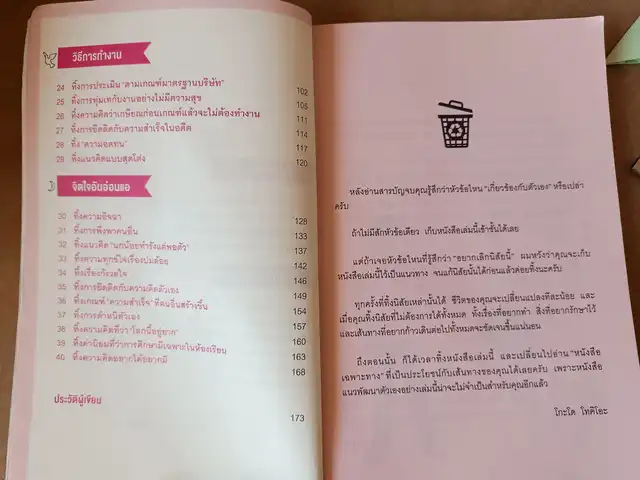 วิธีการทำงาน
24 ทิ้งการประเมิน "ตามเกณฑ์มาตรฐานบริษัท" 102
25 ทิ้งการทุ่มเทกับงานอย่างไม่มีความสุข 105
26 ทิ้งความคิดว่าเกษียณก่อนเกณฑ์แล้วจะไม่ต้องทำงาน 111
27 ทิ้งการยึดติดกับความสำเร็จในอดีต 114
28 ทิ้ง "ความอดทน" 117
29 ทิ้งแนวคิดแบบสุดโต่ง 120
จิตใจอันอ่อนแอ
30 ทิ้งความอิจฉา 128
31 ทิ้งการพึ่งพาคนอื่น 133
32 ทิ้งแนวคิด "นกน้อยทำรังแต่พอตัว" 137
33 ทิ้งความทุกข์ใจเรื่องปมด้อย 142
34 ทิ้งเรื่องกังวลใจ 146
35 ทิ้งการยึดติดกับความคิดตัวเอง 149
36 ทิ้งเกณฑ์ "ความสำเร็จ" ที่คนอื่นสร้างขึ้น 154
37 ทิ้งการตำหนิตัวเอง 157
38 ทิ้งความคิดที่ว่า "โลกนี้อยู่ยาก" 160
39 ทิ้งค่านิยมที่ว่าการศึกษามีเฉพาะในห้องเรียน 163
40 ทิ้งความคิดอยากได้อยากมี 168
ประวัติผู้เขียน 173
หลังอ่านสารบัญจบคุณรู้สึกว่าหัวข้อไหน "เกี่ยวข้องกับตัวเอง" หรือเปล่า
ครับ
ถ้าไม่มีสักหัวข้อเดียว เก็บหนังสือเล่มนี้เข้าชั้นได้เลย
แต่ถ้าเจอหัวข้อไหนที่รู้สึกว่า "อยากเลิกนิสัยนี้" ผมหวังว่าคุณจะเก็บ
หนังสือเล่มนี้ไว้เป็นแนวทาง จนแก้นิสัยนั้นได้ก่อนค่อยทิ้งนะครับ
ทุกครั้งที่ทิ้งนิสัยเหล่านั้นได้ ชีวิตของคุณจะเปลี่ยนแปลงทีละน้อย และ
เมื่อคุณทิ้งนิสัยที่ไม่ต้องการได้ทั้งหมด ทั้งเรื่องที่อยากทำ สิ่งที่อยากรักษาไว้
และเส้นทางที่อยากก้าวเดินต่อไปทั้งหมดจะชัดเจนขึ้นแน่นอน
ถึงตอนนั้น ก็ได้เวลาทิ้งหนังสือเล่มนี้ และเปลี่ยนไปอ่าน "หนังสือ
เฉพาะทาง" ที่เป็นประโยชน์กับเส้นทางของคุณได้เลยครับ เพราะหนังสือ
แนวพัฒนาตัวเองอย่างเล่มนี้น่าจะไม่จำเป็นสำหรับคุณอีกแล้ว
โกะโด โทคิโอะ